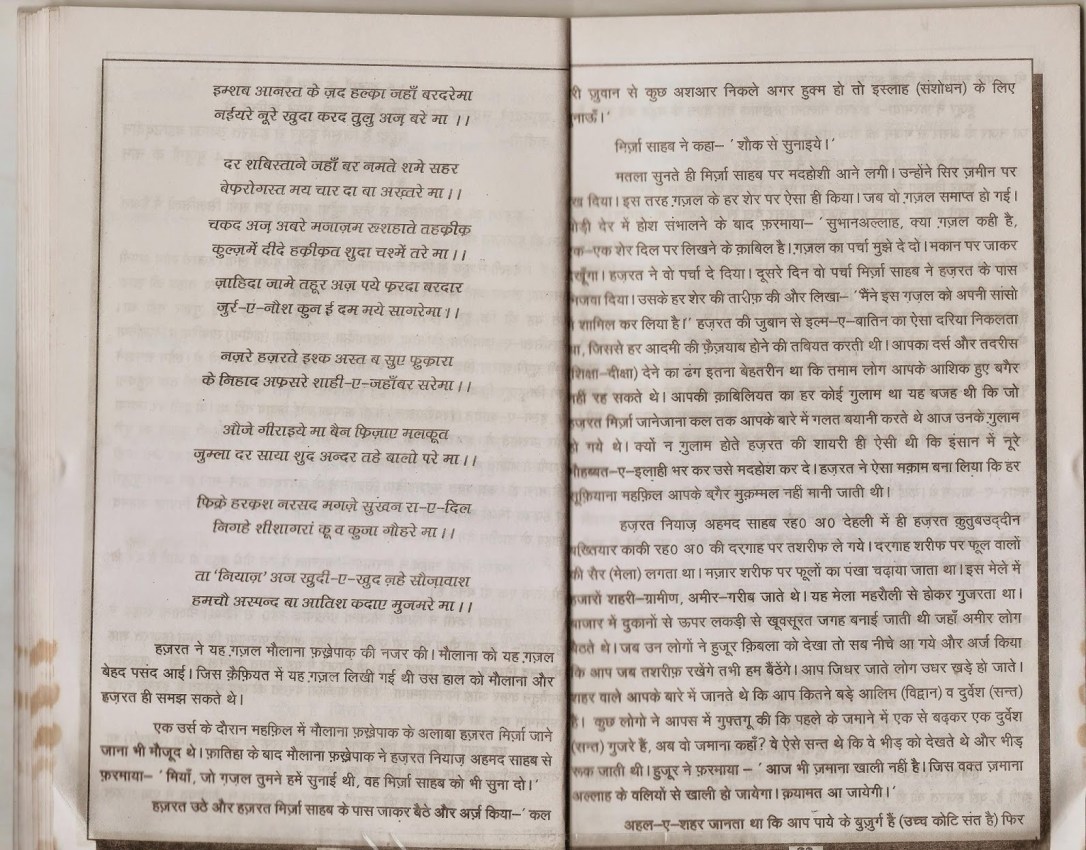 इम्शब आनस्त के ज़द हल्क़ा जहाँ बरदरेमा
नईयरे नूरे खुदा करद तुलु अज़ बरे मा ।।
दर शबिस्ताने जहाँ बर नमते शमे सहर
बेफ़रोगस्त मय चार दा बा अख़्तरे मा।।
चकद अज़ अबरे मजाज़म रशहाते तहक़ीक़
कुल्ज़में दीदे हक़ीक़त शुदा चश्में तरे मा।।
ज़ाहिदा जामे तहूर अज़ पये फ़रदा बरदार
जुर्र-ए-नौश कुन ई दम मये सागरेमा।।
नज़रे हज़रते इश्क अस्त ब सुए फुक़ारा
के निहाद अफ़सरे शाही-ए-जहाँबर सरेमा।।
औजे गीराइये मा बैन फ़िज़ाए मलकूत
जुम्ला दर साया शुद अन्दर तहे बालो परे मा।।
फिक्रे हरकश नरसद मगज़े सुख़न रा-ए-दिल
निगहे शीशागरां कू व कुजा गौहरे मा।।
ता 'नियाज़' अज खुदी-ए-खुद ज़हे सौज़ावाश
हमचौ अस्पन्द बा आतिश कदाए मुजमरे मा।।
हज़रत ने यह ग़ज़ल मौलाना फ़ख्रेपाक़ की नजर की। मौलाना को यह ग़ज़ल
बेहद पसंद आई। जिस क़ैफ़ियत में यह ग़ज़ल लिखी गई थी उस हाल को मौलाना और
हज़रत ही समझ सकते थे।
एक उर्स के दौरान महफ़िल में मौलाना फ़ख्रेपाक के अलाबा हज़रत मिर्ज़ा जाने
जाना भी मौजूद थे। फ़ातिहा के बाद मौलाना फ़ख्रेपाक ने हज़रत नियाज़ अहमद साहब से
फ़रमाया– 'मियाँ, जो गजल तुमने हमें सुनाई थी, वह मिर्ज़ा साहब को भी सुना दो।'
हज़रत उठे और हज़रत मिर्ज़ा साहब के पास जाकर बैठे और अर्ज़ किया–'कल
री ज़ुवान से कुछ अशआर निकले अगर हुक्म हो तो इस्लाह (संशोधन) के लिए
नाऊँ।'
मिर्ज़ा साहब ने कहा– 'शौक से सुनाइये।'
मतला सुनते ही मिर्ज़ा साहब पर मदहोशी आने लगी। उन्होंने सिर ज़मीन पर
ख दिया। इस तरह ग़ज़ल के हर शेर पर ऐसा ही किया। जब वो ग़ज़ल समाप्त हो गई।
ोड़ी देर में होश संभालने के बाद फ़रमाया– 'सुभानअल्लाह, क्या ग़ज़ल कही है,
क-एक शेर दिल पर लिखने के क़ाबिल है। ग़जल का पर्चा मुझे दे दो। मकान पर जाकर
खूँगा। हज़रत ने वो पर्चा दे दिया। दूसरे दिन वो पर्चा मिर्ज़ा साहब ने हज़रत के पास
जवा दिया। उसके हर शेर की तारीफ़ की और लिखा– 'मैंने इस गज़ल को अपनी सासो
शामिल कर लिया है।' हज़रत की जुबान से इल्म-ए-बातिन का ऐसा दरिया निकलता
ा, जिससे हर आदमी की फ़ैज़याब होने की तबियत करती थी। आपका दर्स और तदरीस
शिक्षा-दीक्षा) देने का ढंग इतना बेहतरीन था कि तमाम लोग आपके आशिक हुए बगैर
ही रह सकते थे। आपकी क़ाबिलियत का हर कोई गुलाम था यह बजह थी कि जो
ज़रत मिर्ज़ा जानेजाना कल तक आपके बारे में गलत बयानी करते थे आज उनके ग़ुलाम
ो गये थे। क्यों न ग़ुलाम होते हज़रत की शायरी ही ऐसी थी कि इंसान में नूरे
ोहब्बत-ए-इलाही भर कर उसे मदहोश कर दे। हज़रत ने ऐसा मक़ाम बना लिया कि हर
ूफ़ियाना महफ़िल आपके बगैर मुक़म्मल नहीं मानी जाती थी।
हज़रत नियाज़ अहमद साहब रह0 अ0 देहली में ही हज़रत क़ुतुबउद्दीन
बख्तियार काकी रह0 अ0 की दरगाह पर तशरीफ ले गये। दरगाह शरीफ पर फूल वालों
की सैर (मेला) लगता था। मज़ार शरीफ पर फूलों का पंखा चढ़ाया जाता था। इस मेले में
हजारों शहरी-ग्रामीण, अमीर-गरीब जाते थे। यह मेला महरौली से होकर गुजरता था।
बाजार में दुकानों से ऊपर लकड़ी से खूवसूरत जगह बनाई जाती थी जहाँ अमीर लोग
बैठते थे। जब उन लोगों ने हुजूर क़िबला को देखा तो सब नीचे आ गये और अर्ज किया
कि आप जब तशरीफ रखेंगे तभी हम बैंठेंगे। आप जिधर जाते लोग उधर खड़े हो जाते।
शहर वाले आपके बारे में जानते थे कि आप कितने बड़े आलिम (विद्वान) व दुर्वेश (सन्त)
हैं। कुछ लोगो ने आपस में गुफ्तगू की कि पहले के जमाने में एक से बढ़कर एक दुर्वेश
(सन्त) गुजरे हैं, अब वो जमाना कहाँ? वे ऐसे सन्त थे कि वे भीड़ को देखते थे और भीड़
रूक जाती थी। हुजूर ने फ़रमाया – 'आज भी ज़माना खाली नहीं है। जिस वक्त ज़माना
अल्लाह के वलियों से खाली हो जायेगा। क़यामत आ जायेगी।'
अहल-ए-शहर जानता था कि आप पाये के बुज़ुर्ग हैं (उच्च कोटि संत है) फिर